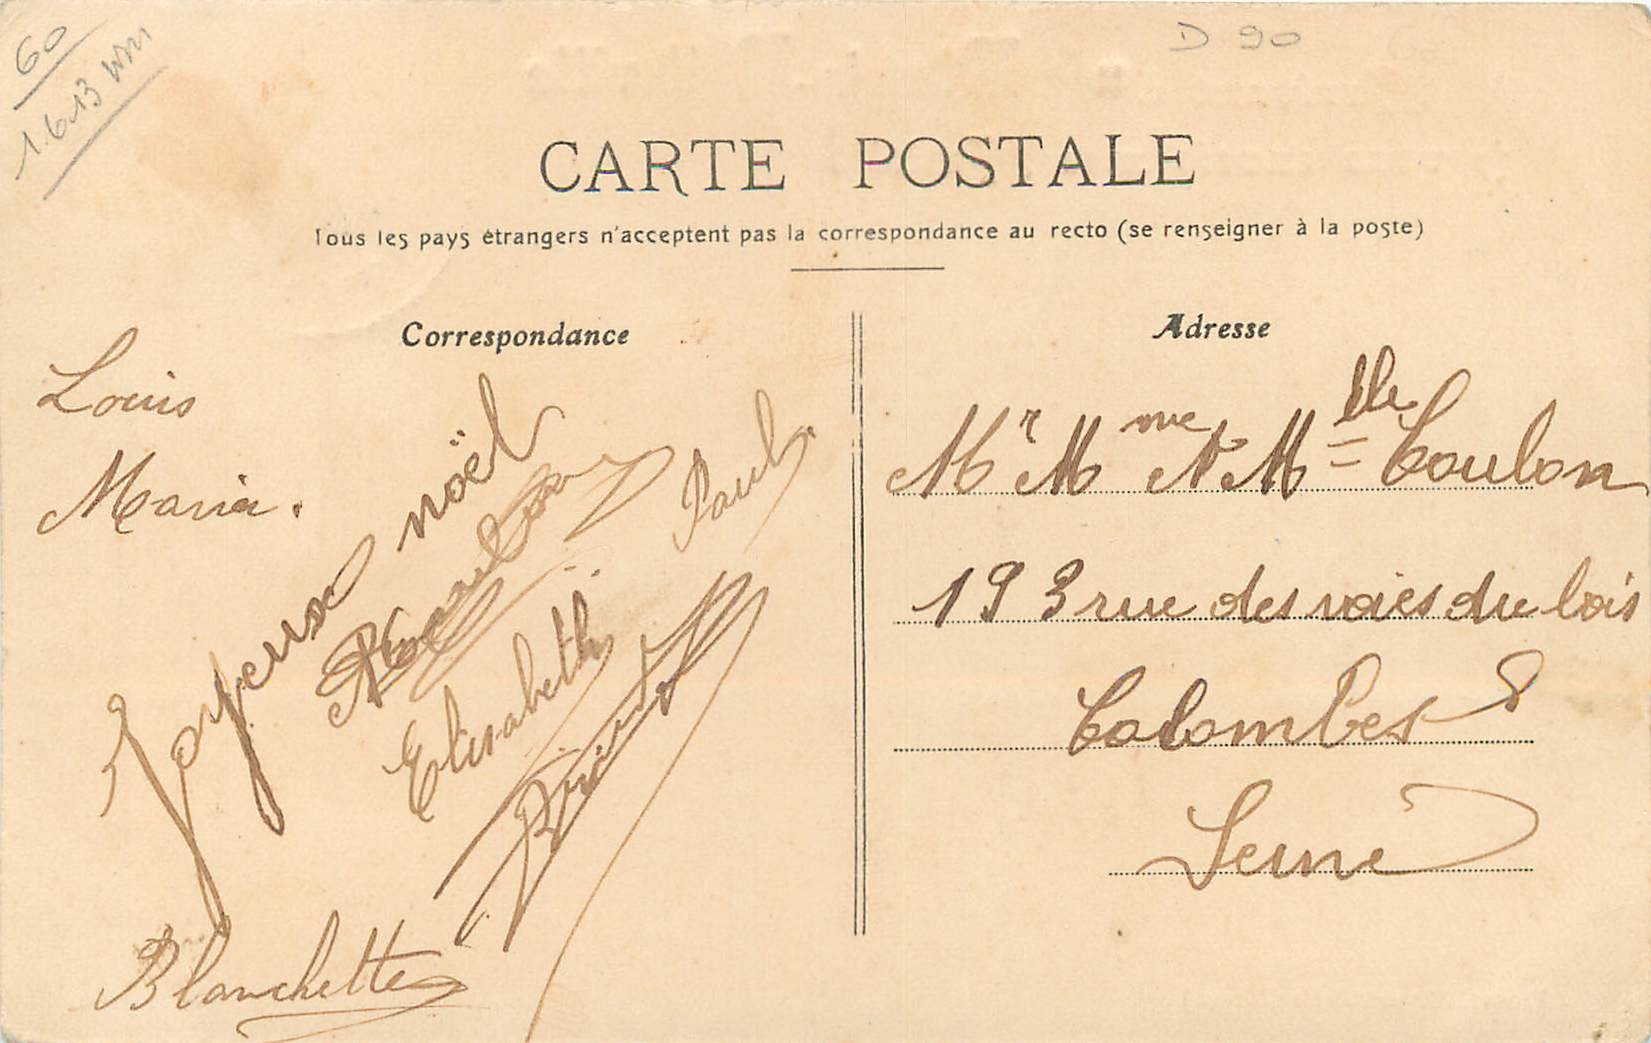 60
1.6.13
D 90
CARTE POSTALE
Tous les pays étrangers n'acceptent pas la correspondance au recto (se renseigner à la poste)
Correspondance
Louis
Maria.
Joyeux noël
Paul
Elisabeth
Blanchette
Adresse
Mr Mme et Mlle Coulon
193 rue des voies du bois
Colombes
Seine